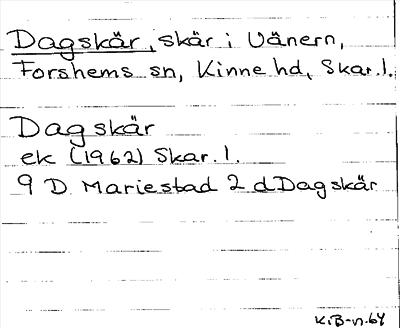 Dagskär, skär i Vänern,
Forshems sn, Kinne hd, Skar.l.
Dagskär
ek (1962) Skar.l.
9 D Mariestad 2 d Dagskär
K.B-n.64